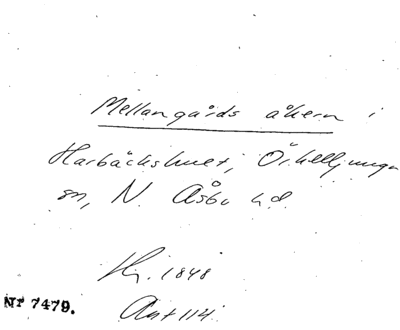 Mellangårds åkern i
Harbäckshult, Örkelljunga
sn, N. Åsbo hd.
Hj. 1848
Nr 7479.
Ant 114.